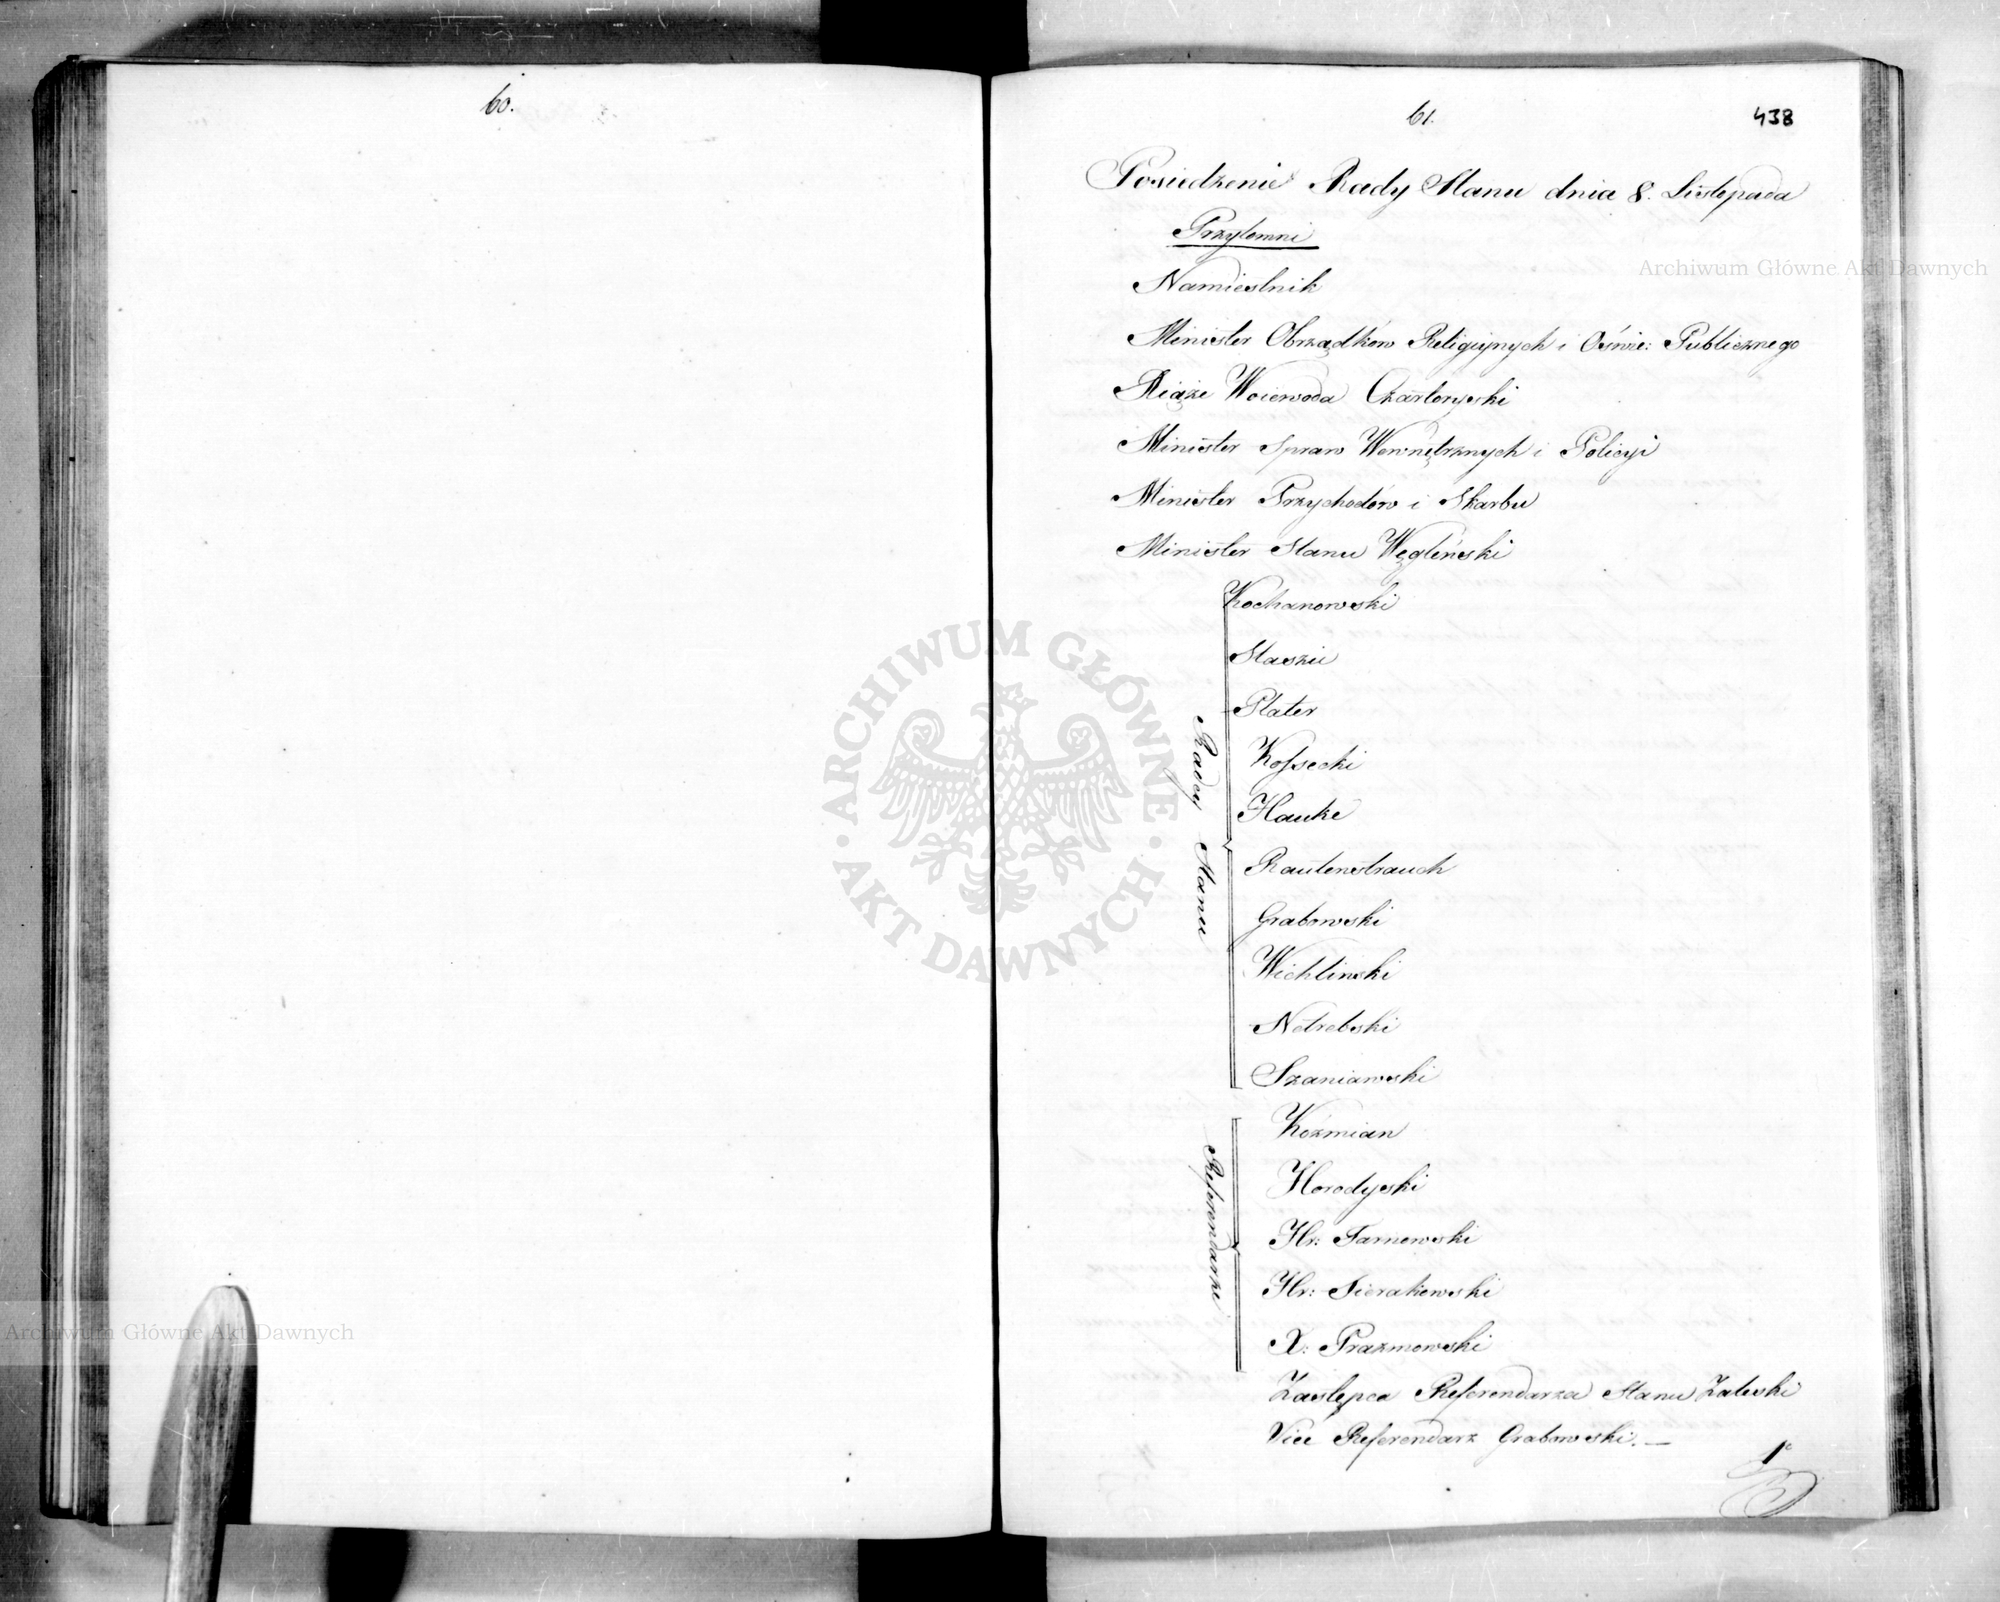 60.
61.
438
Posiedzenie Rady Stanu dnia 8. Listopada
Przytomni
Namiestnik
Minister Obrządków Religiynych i Oświe: Publicznego
Xiąże Woiewoda Czartoryski
Minister Spraw Wewnętrznych i Policyi
Minister Przychodów i Skarbu
Minister Stanu Węgleński
Radcy Stanu
Kochanowski
Staszic
Plater
Kossecki
Hauke
Rautenstrauch
Grabowski
Wichlinski
Netrebski
Szaniawski
Referendarze
Koźmian
Horodyski
Hr: Tarnowski
Hr: Sierakowski
X: Prazmowski
Zastępca Referendarza Stanu Zaleski
Vice Referendarz Grabowski. —
1º
Archiwum Główne Akt Dawnych
ARCHIWUM GŁÓWNE · AKT DAWNYCH ·
Archiwum Główne Akt Dawnych